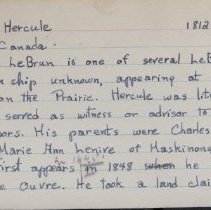 Hercule 1812
Canada.
LeBrun is one of several LeB
n ship unknown, appearing at
on the Prairie. Hercule was lit
served as witness or advisor to
ors. His parents were Charles
Marie Ann Lenire of Maskinong
first appears in 1848 when he
e Ouvre. He took a land clai